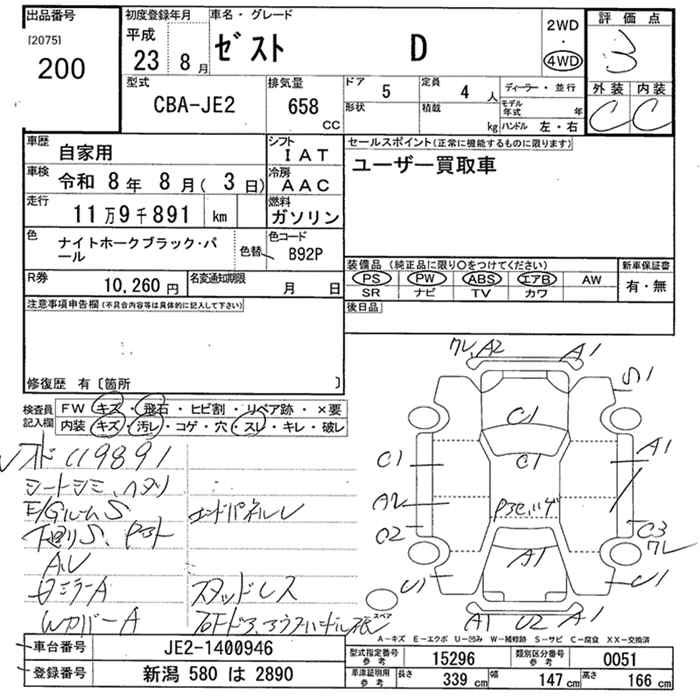 出品番号
[2075]
200
初度登録年月
平成
23 8月
車名・グレード
ゼスト D
2WD
・
4WD
評価点
3
外装 内装
C C
型式
CBA-JE2
排気量
658
CC
ドア
5
定員
4人
形状
積載
kg
ディーラー・並行
モデル年式 年
ハンドル 左・右
車歴
自家用
シフト
IAT
車検
令和 8年 8月( 3日)
冷房
AAC
走行
11万9千891 km
燃料
ガソリン
色
ナイトホークブラック・パール
色替
色コード
B92P
R券
10,260円
名変通知期限
月 日
セールスポイント(正常に機能するものに限ります)
ユーザー買取車
装備品(純正品に限り○をつけてください)
PS PW ABS エアB AW
SR ナビ TV カワ
新車保証書
有・無
後日品
注意事項申告欄(不具合内容等は具体的に記入して下さい)
修復歴 有〔箇所 〕
検査員
記入欄
FW キズ・飛石・ヒビ割・リペア跡・×要
内装 キズ・汚レ・コゲ・穴・スレ・キレ・破レ
119891
シートシミ、ヘタリ
E/GルームS エンドパネルU
下回りS、
AU
ロミラーA スタッドレス
WカバーA
ワレ、A2 A1
S1
C1
C1 C1 A1
A2
C2 C3
ワレ
A1
U1 U1
スペア
A1 U2 A1
A-キズ E-エクボ U-凹み W-補修跡 S-サビ C-腐食 XX-交換済
車台番号
JE2-1400946
登録番号
新潟 580 は 2890
型式指定番号
参考
15296
類別区分番号
参考
0051
車庫証明用
参考
長さ
339 cm
幅
147 cm
高さ
166 cm